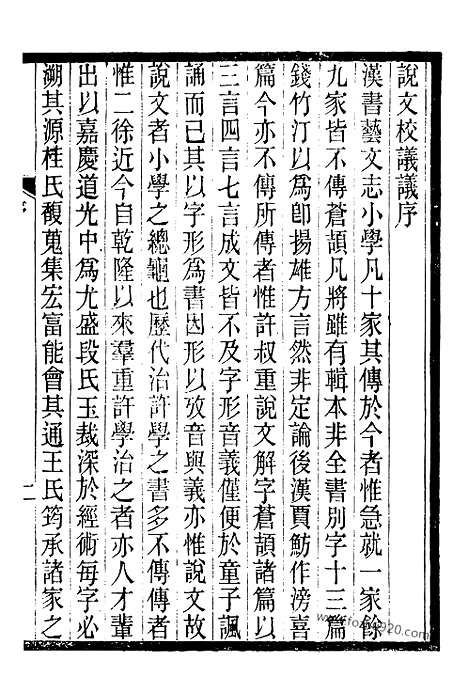 說文校議議序
漢書藝文志小學凡十家其傳於今者惟急就一家餘
九家皆不傳蒼頡凡將雖有輯本非全書別字十三篇
錢竹汀以爲卽揚雄方言然非定論後漢賈魴作滂喜
篇今亦不傳所傳者惟許叔重說文解字蒼頡諸篇以
三言四言七言成文皆不及字形音義僅便於童子諷
誦而已其以字形爲書因形以攷音與義亦惟說文故
說文者小學之總龜也歷代治許學之書多不傳傳者
惟二徐近今自乾隆以來羣重許學治之者亦人才輩
出以嘉慶道光中爲尤盛段氏玉裁深於經術每字必
溯其源桂氏馥蒐集宏富能會其通王氏筠承諸家之
序
一
www.fozu920.com